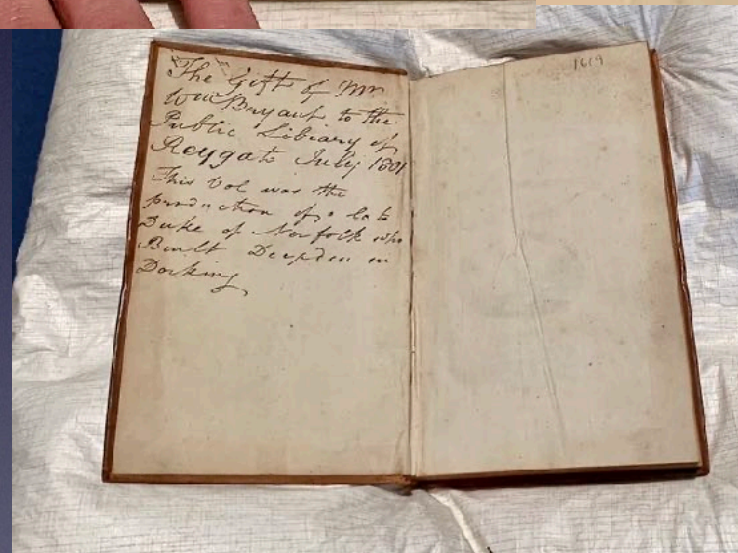 The Gift of Mr
Wm Bryant to the
Public Library of
Reygate July 1801
This Vol was the
production of a late
Duke of Norfolk who
Built Deepden in
Dorking
1619